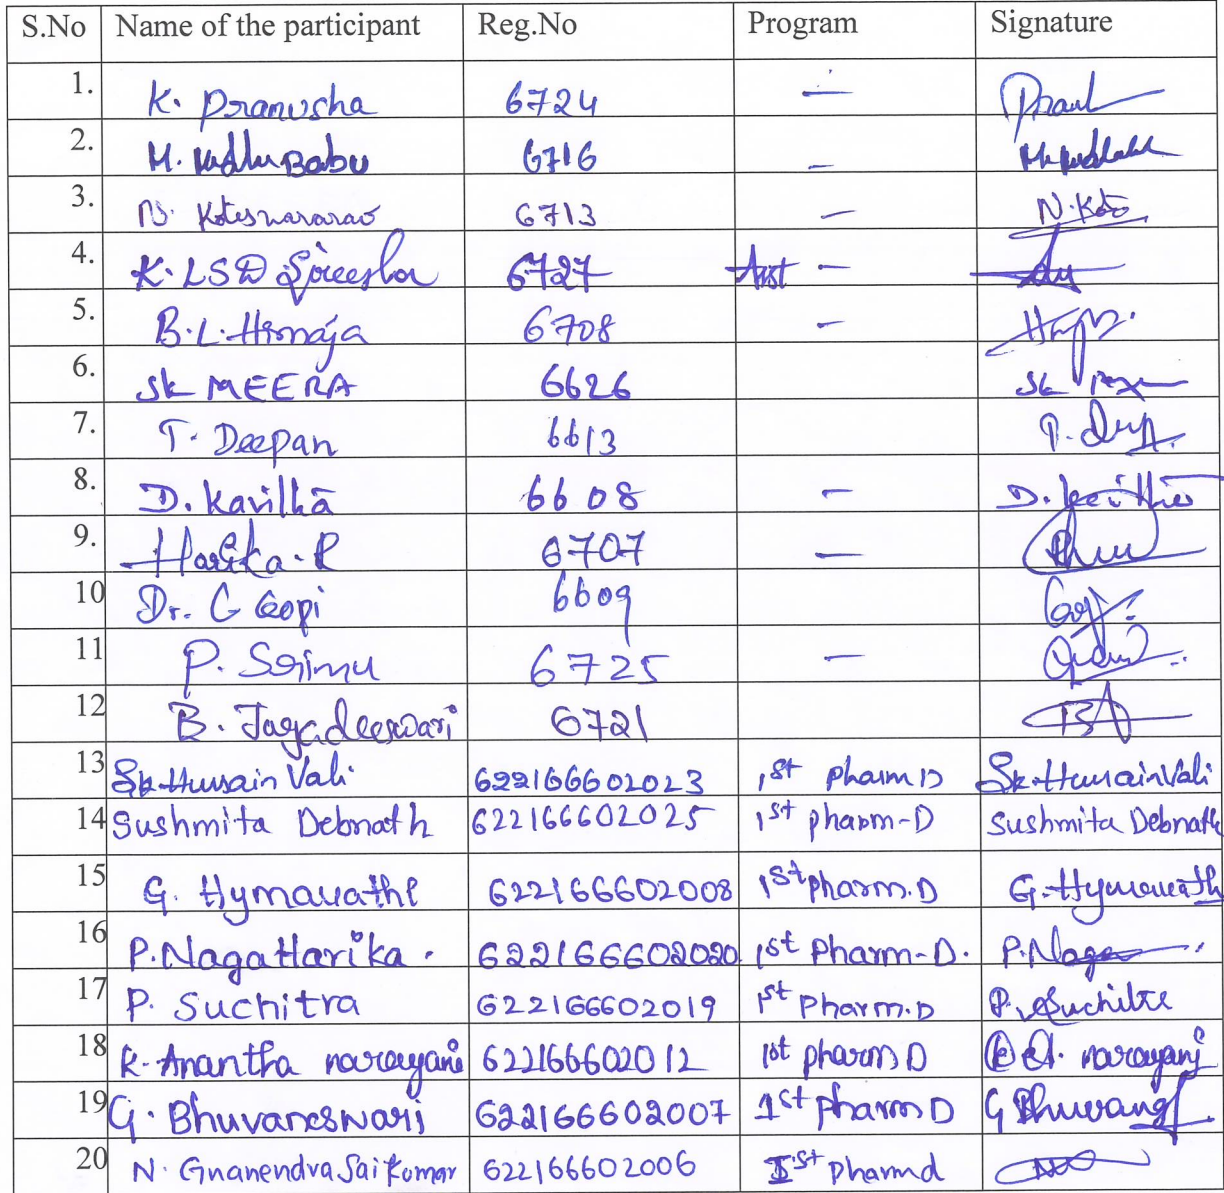 S.No Name of the participant Reg.No Program Signature
1. K. Pranusha 6724 —
2. M. Madhu Babu 6716 —
3. N. Koteswararao 6713 — N. Koto
4. K. LSD Sireesha 6727 Asst —
5. B.L. Himaja 6708 —
6. Sk MEERA 6626 Sk
7. T. Deepan 6613
8. D. Kavitha 6608 — D. Kavitha
9. Harika. R 6707 —
10 Dr. G Gopi 6609
11 P. Srinu 6725 —
12 B. Jagadeeswari 6721
13 Sk. Hussain Vali 622166602023 1st pharm D Sk. Hussain Vali
14 Sushmita Debnath 622166602025 1st pharm-D Sushmita Debnath
15 G. Hymavathi 622166602008 1st pharm.D G. Hymavath
16 P. Naga Harika. 622166602020 1st Pharm-D. P. Naga
17 P. Suchitra 622166602019 1st Pharm.D P. Suchitra
18 K. Anantha narayani 622166602012 1st pharm D narayani
19 G. Bhuvaneswari 622166602007 1st pharm D G Bhuvang
20 N. Gnanendra Sai Kumar 622166602006 Ist pharmd